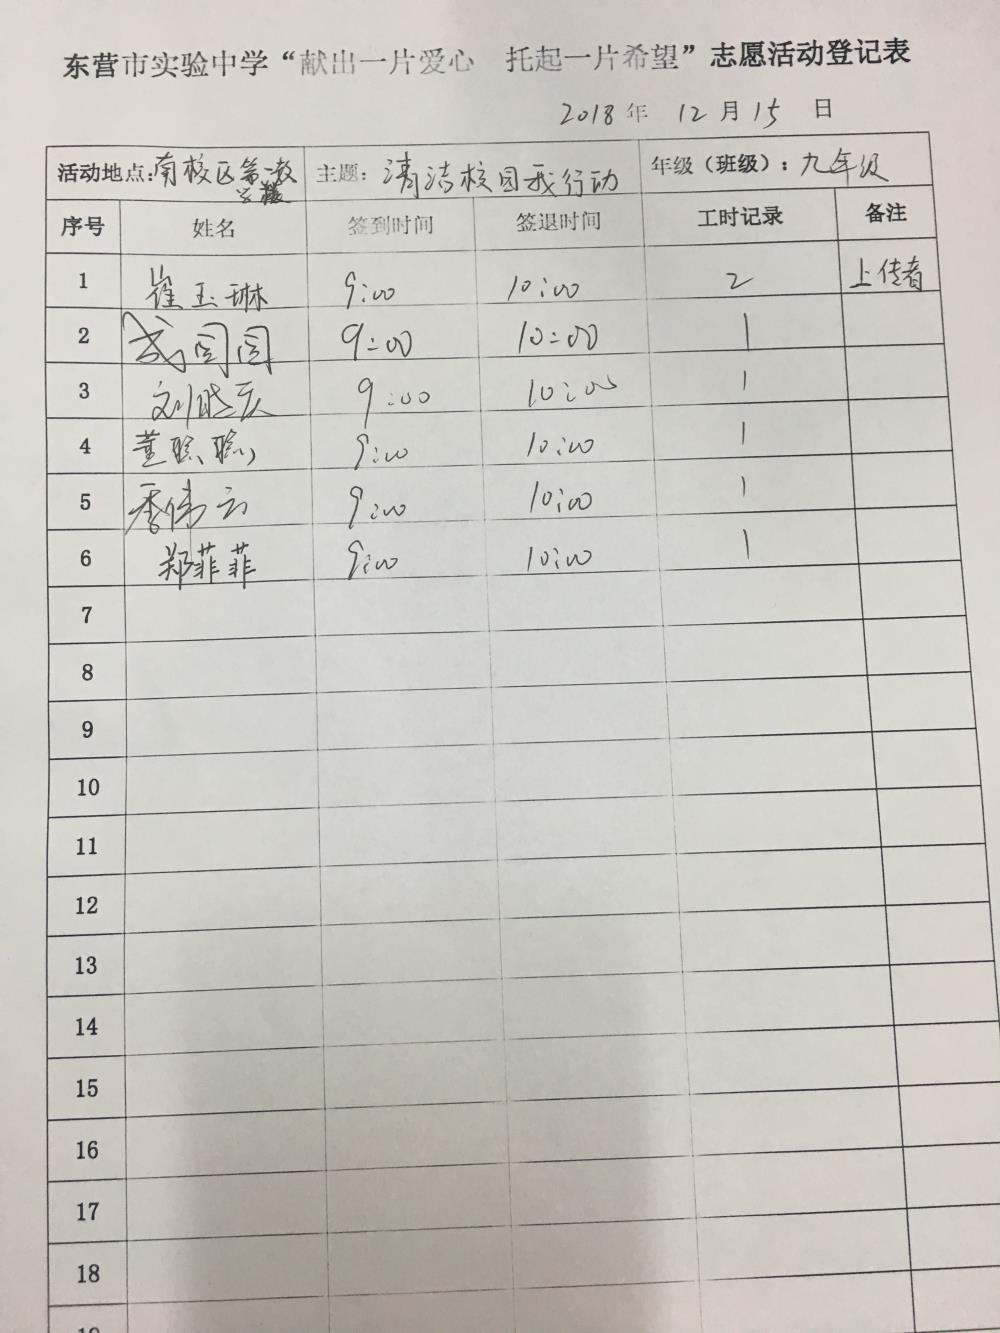 东营市实验中学“献出一片爱心 托起一片希望”志愿活动登记表
2018年 12月15日
活动地点:南校区第一教学楼 主题:清洁校园我行动 年级(班级):九年级
序号 姓名 签到时间 签退时间 工时记录 备注
1 崔玉琳 9:00 10:00 2 上传者
2 9:00 10:00 1
3 刘晓庆 9:00 10:00 1
4 董聪聪 9:00 10:00 1
5 季伟云 9:00 10:00 1
6 郑菲菲 9:00 10:00 1
7
8
9
10
11
12
13
14
15
16
17
18